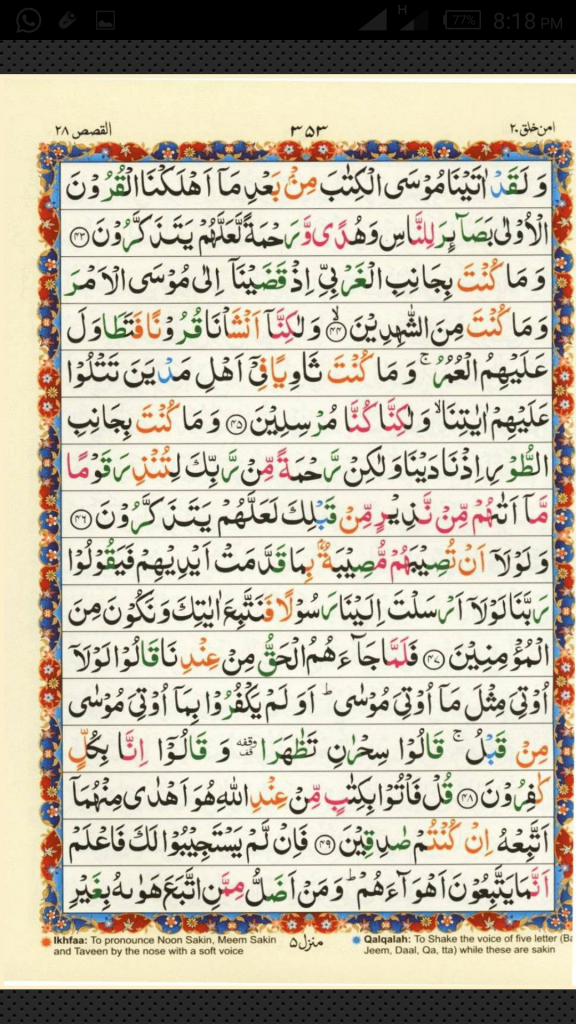 H 77% 8:18 PM
القصص ٢٨ ٣٥٣ امن خلق ٢٠
وَ لَقَدْ اٰتَيْنَا مُوْسَى الْكِتٰبَ مِنْۢ بَعْدِ مَاۤ اَهْلَكْنَا الْقُرُوْنَ
الْاُوْلٰى بَصَآىِٕرَ لِلنَّاسِ وَ هُدًى وَّ رَحْمَةً لَّعَلَّهُمْ يَتَذَكَّرُوْنَ ﴿۴۳﴾
وَ مَا كُنْتَ بِجَانِبِ الْغَرْبِيِّ اِذْ قَضَيْنَاۤ اِلٰى مُوْسَى الْاَمْرَ
وَ مَا كُنْتَ مِنَ الشّٰهِدِيْنَ ۙ﴿۴۴﴾ وَ لٰكِنَّاۤ اَنْشَاْنَا قُرُوْنًا فَتَطَاوَلَ
عَلَيْهِمُ الْعُمُرُ ۚ وَ مَا كُنْتَ ثَاوِيًا فِيْۤ اَهْلِ مَدْيَنَ تَتْلُوْا
عَلَيْهِمْ اٰيٰتِنَا ۙ وَ لٰكِنَّا كُنَّا مُرْسِلِيْنَ ﴿۴۵﴾ وَ مَا كُنْتَ بِجَانِبِ
الطُّوْرِ اِذْ نَادَيْنَا وَ لٰكِنْ رَّحْمَةً مِّنْ رَّبِّكَ لِتُنْذِرَ قَوْمًا
مَّاۤ اَتٰىهُمْ مِّنْ نَّذِيْرٍ مِّنْ قَبْلِكَ لَعَلَّهُمْ يَتَذَكَّرُوْنَ ﴿۴۶﴾
وَ لَوْ لَاۤ اَنْ تُصِيْبَهُمْ مُّصِيْبَةٌۢ بِمَا قَدَّمَتْ اَيْدِيْهِمْ فَيَقُوْلُوْا
رَبَّنَا لَوْ لَاۤ اَرْسَلْتَ اِلَيْنَا رَسُوْلًا فَنَتَّبِعَ اٰيٰتِكَ وَ نَكُوْنَ مِنَ
الْمُؤْمِنِيْنَ ﴿۴۷﴾ فَلَمَّا جَآءَهُمُ الْحَقُّ مِنْ عِنْدِنَا قَالُوْا لَوْ لَاۤ
اُوْتِيَ مِثْلَ مَاۤ اُوْتِيَ مُوْسٰى ؕ اَوَ لَمْ يَكْفُرُوْا بِمَاۤ اُوْتِيَ مُوْسٰى
مِنْ قَبْلُ ۚ قَالُوْا سِحْرٰنِ تَظٰهَرَا وقفة وَ قَالُوْۤا اِنَّا بِكُلٍّ
كٰفِرُوْنَ ﴿۴۸﴾ قُلْ فَاْتُوْا بِكِتٰبٍ مِّنْ عِنْدِ اللّٰهِ هُوَ اَهْدٰى مِنْهُمَاۤ
اَتَّبِعْهُ اِنْ كُنْتُمْ صٰدِقِيْنَ ﴿۴۹﴾ فَاِنْ لَّمْ يَسْتَجِيْبُوْا لَكَ فَاعْلَمْ
اَنَّمَا يَتَّبِعُوْنَ اَهْوَآءَهُمْ ؕ وَ مَنْ اَضَلُّ مِمَّنِ اتَّبَعَ هَوٰىهُ بِغَيْرِ
Ikhfaa: To pronounce Noon Sakin, Meem Sakin and Taveen by the nose with a soft voice
منزل ۵
Qalqalah: To Shake the voice of five letter (Ba Jeem, Daal, Qa, tta) while these are sakin